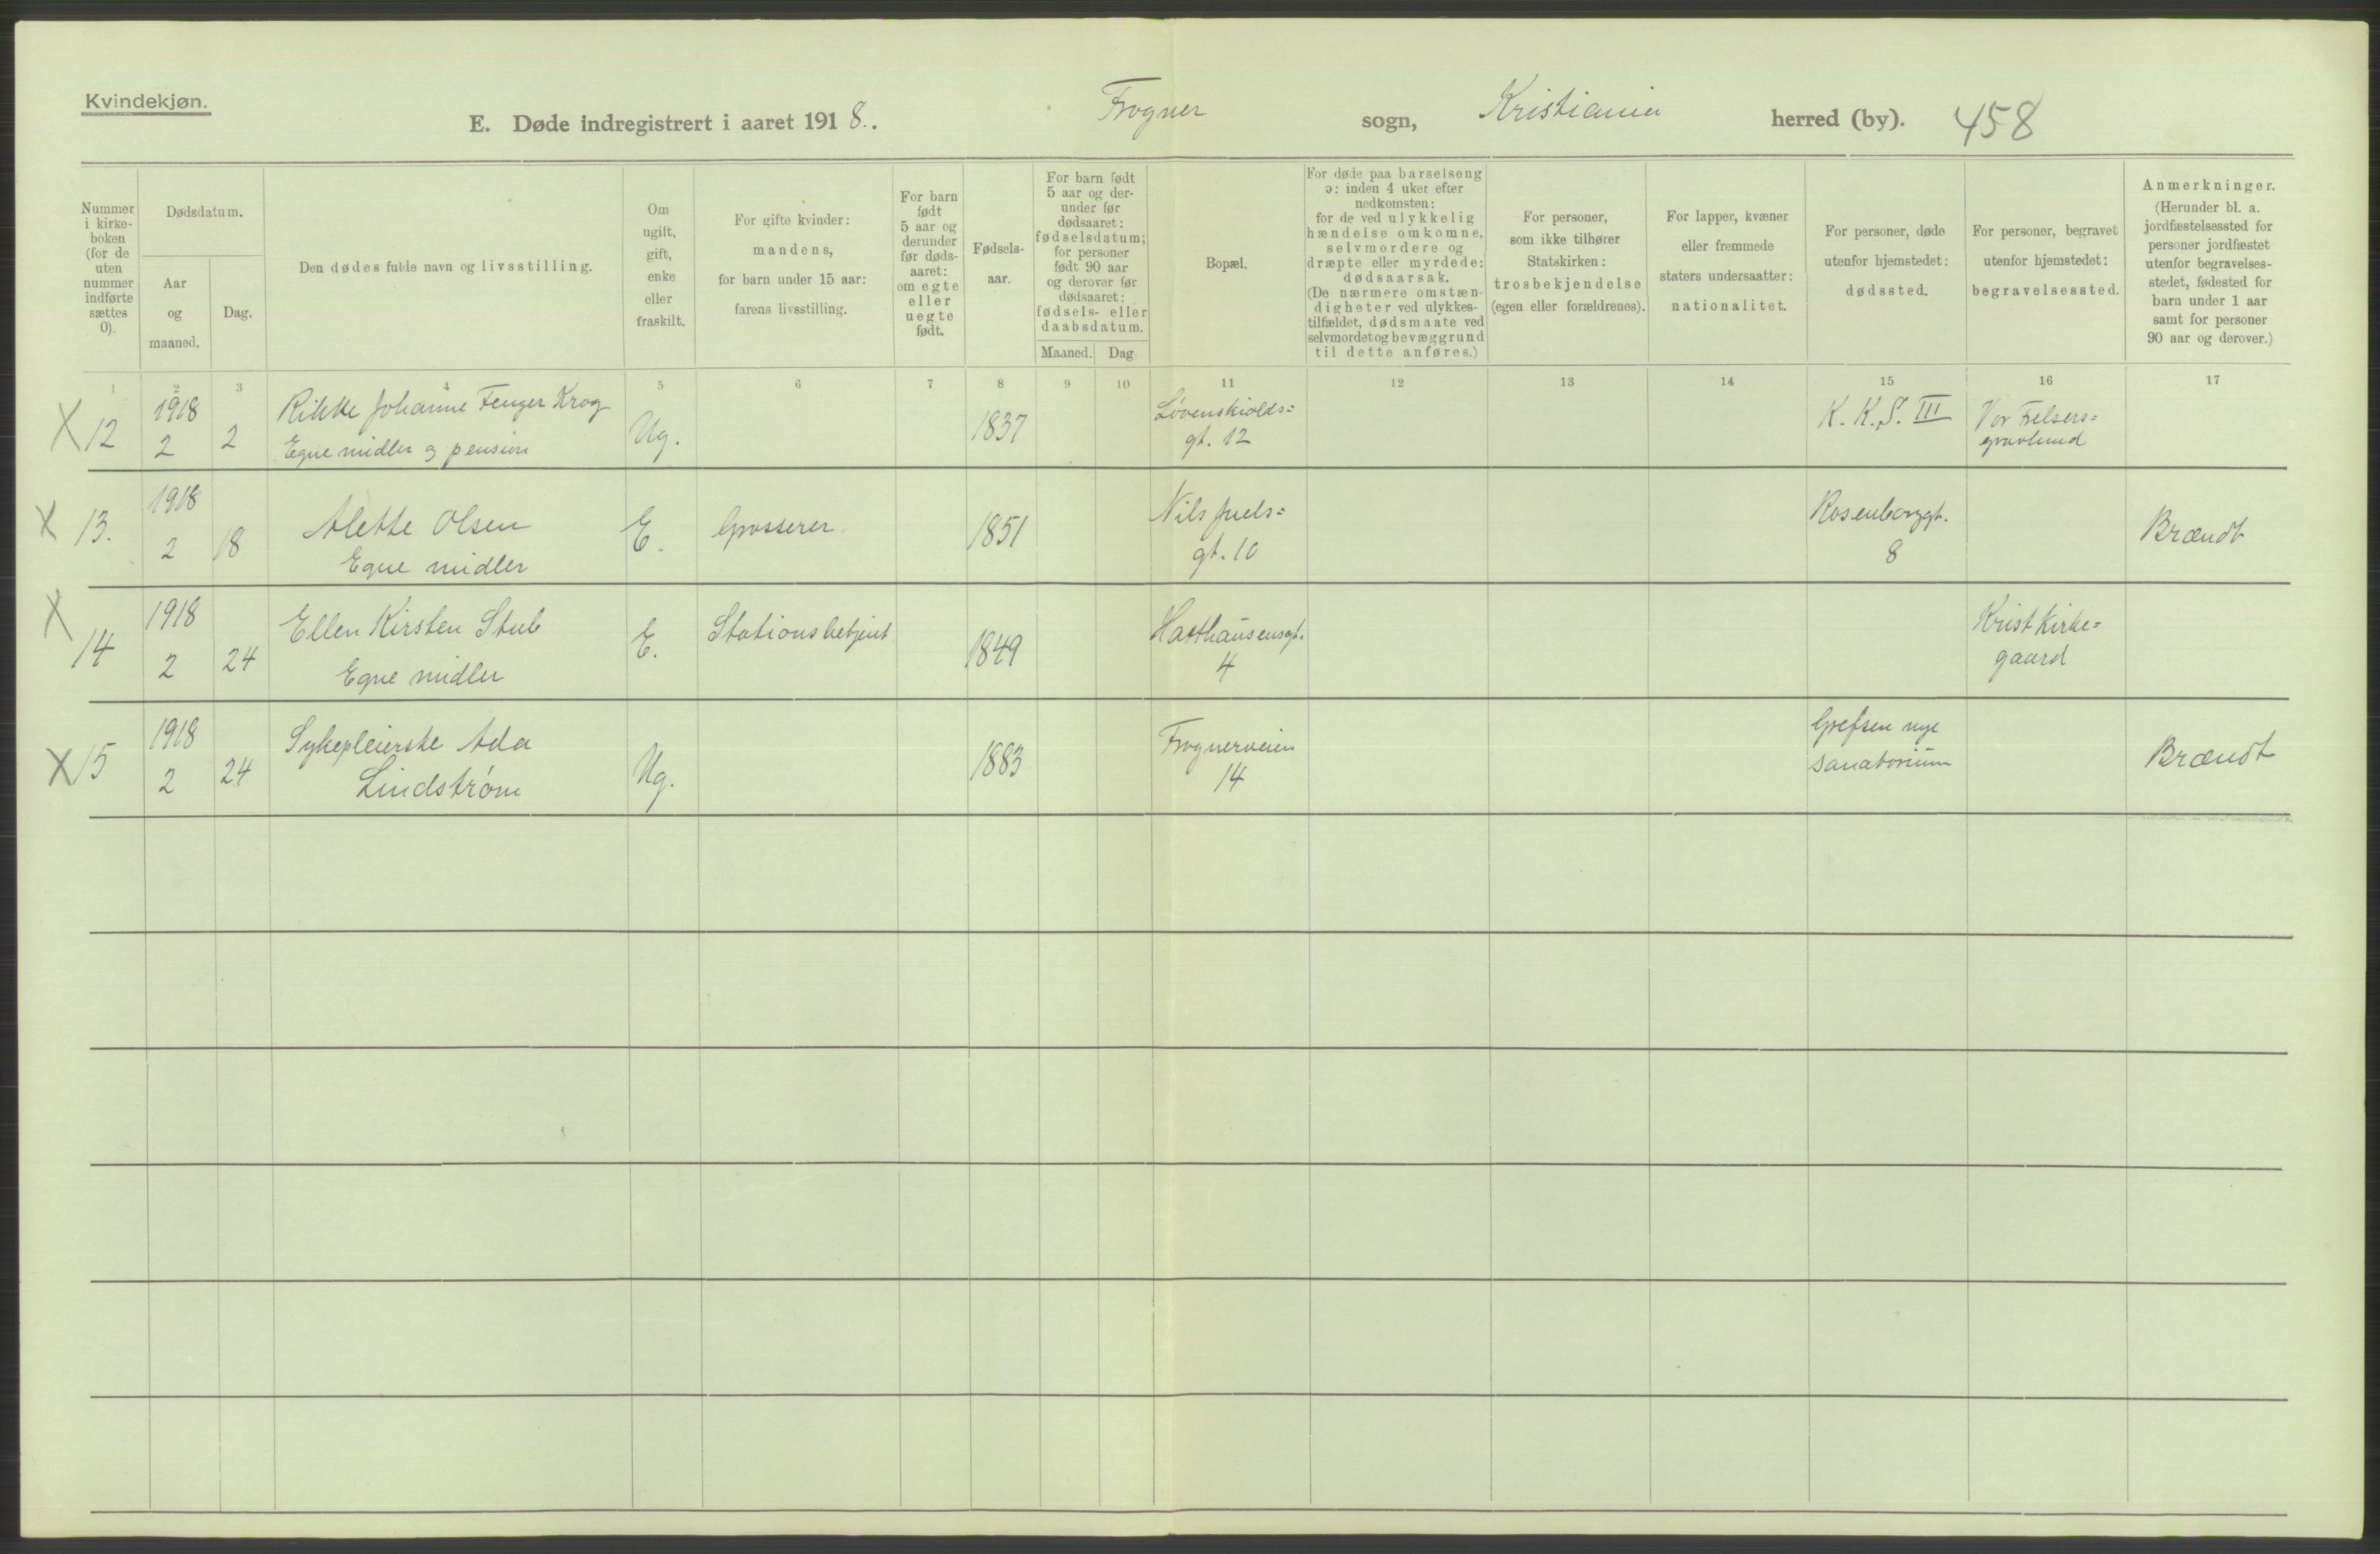 Kvindekjøn.
E. Døde indregistrert i aaret 1918. Frogner sogn, Kristiania herred (by). 458
Nummer
i kirke-
boken
(for de
uten
nummer
indførte
sættes
0).
Dødsdatum.
Aar
og
maaned.
Dag.
Den dødes fulde navn og livsstilling.
Om
ugift,
gift,
enke
eller
fraskilt.
For gifte kvinder:
mandens,
for barn under 15 aar:
farens livsstilling.
For barn
født
5 aar og
derunder
før døds-
aaret:
om egte
eller
uegte
født.
Fødsels-
aar.
For barn født
5 aar og der-
under før
dødsaaret:
fødselsdatum;
for personer
født 90 aar
og derover før
dødsaaret:
fødsels- eller
daabsdatum.
Maaned. Dag
Bopæl.
For døde paa barselseng
ɔ: inden 4 uker efter
nedkomsten:
for de ved ulykkelig
hændelse omkomne,
selvmordere og
dræpte eller myrdede:
dødsaarsak.
(De nærmere omstæn-
digheter ved ulykkes-
tilfældet, dødsmaate ved
selvmordet og bevæggrund
til dette anføres.)
For personer,
som ikke tilhører
Statskirken:
trosbekjendelse
(egen eller forældrenes).
For lapper, kvæner
eller fremmede
staters undersaatter:
nationalitet.
For personer, døde
utenfor hjemstedet:
dødssted.
For personer, begravet
utenfor hjemstedet:
begravelsessted.
Anmerkninger.
(Herunder bl. a.
jordfæstelsessted for
personer jordfæstet
utenfor begravelses-
stedet, fødested for
barn under 1 aar
samt for personer
90 aar og derover.)
1 2 3 4 5 6 7 8 9 10 11 12 13 14 15 16 17
X 12
1918
2 2
Rikke Johanne Fenger Krog
Egne midler og pension
Ug.
1837
Løvenskiolds=
gt. 12
K. K. S. III
Vor Frelsers=
gravlund
X 13.
1918
2 18
Alette Olsen
Egne midler
E.
Grosserer
1851
Nils Juels=
gt. 10
Rosenborggt.
8
Brændt
X 14
1918
2 24
Ellen Kirsten Stub
Egne midler
E.
Stationsbetjent
1849
Haxthausensgt.
4
Krist Kirke=
gaard
X 15
1918
2 24
Sykepleierske Ada
Lindstrøm
Ug.
1883
Frognerveien
14
Grefsen nye
sanatorium
Brændt